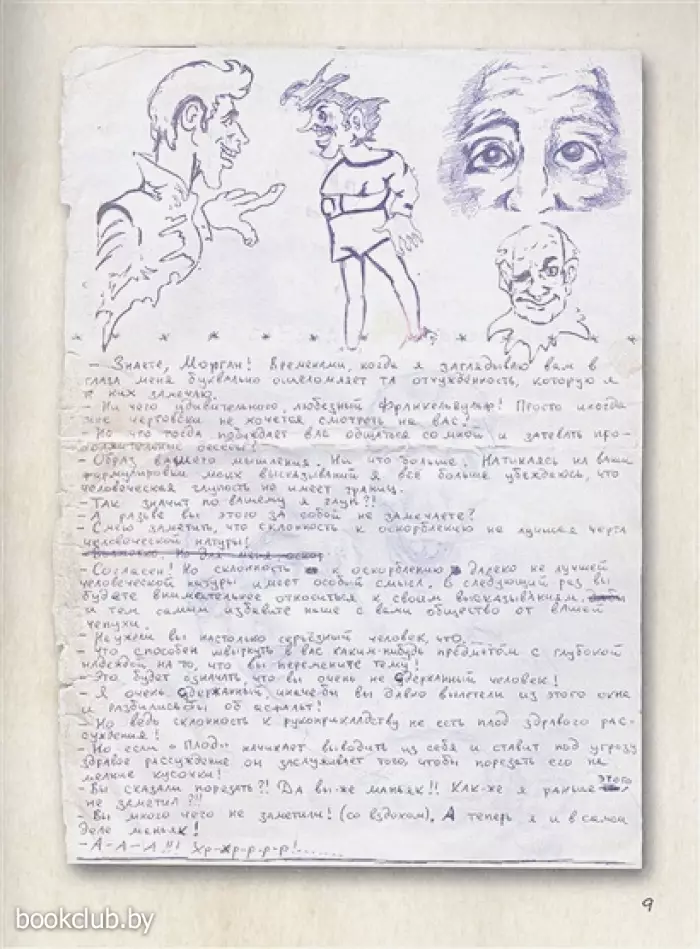 * * * * * * * * *
– Знаете, Морган! Временами, когда я заглядываю вам в
глаза меня буквально ошеломляет та отчуждённость, которую я
в них замечаю.
– Ни чего удивительного, любезный Франкенвульф! Просто иногда
мне чертовски не хочется смотреть на вас.
– Но что тогда побуждает вас общаться со мной и затевать про-
должительные беседы?
– Образ вашего мышления. Ни что больше. Натыкаясь на ваши
формулировки моих высказываний я всё больше убеждаюсь, что
человеческая глупость не имеет границ.
– Так значит по вашему я глуп?!
– А разве вы этого за собой не замечаете?
– Смею заметить, что склонность к оскорблению не лучшая черта
человеческой натуры!
– Возможно. Но для меня оскор
– Согласен! Но склонность к оскорблению далеко не лучшей
человеческой натуры имеет особый смысл. В следующий раз вы
будете внимательнее относиться к своим высказываниям,
и тем самым избавите наше с вами общество от вашей
чепухи.
– Неужели вы настолько серьёзный человек, что...
– Что способен швырнуть в вас каким-нибудь предметом с глубокой
надеждой на то, что вы перемените тему!
– Это будет означать, что вы очень не сдержанный человек!
– Я очень сдержанный, иначе бы вы давно вылетели из этого окна
и разбились бы об асфальт!
– Но ведь склонность к рукоприкладству не есть плод здравого рас-
суждения!
– Но если «плод» начинает выводить из себя и ставит под угрозу
здравое рассуждение он заслуживает того, чтобы порезать его на
мелкие кусочки!
– Вы сказали порезать?! Да вы-же маньяк!! Как-же я раньше этого
не заметил?!!
– Вы много чего не заметили! (со вздохом). А теперь я и в самом
деле маньяк!
– А-А-А!!! Хр-хр-р-р-р!......
9
bookclub.by